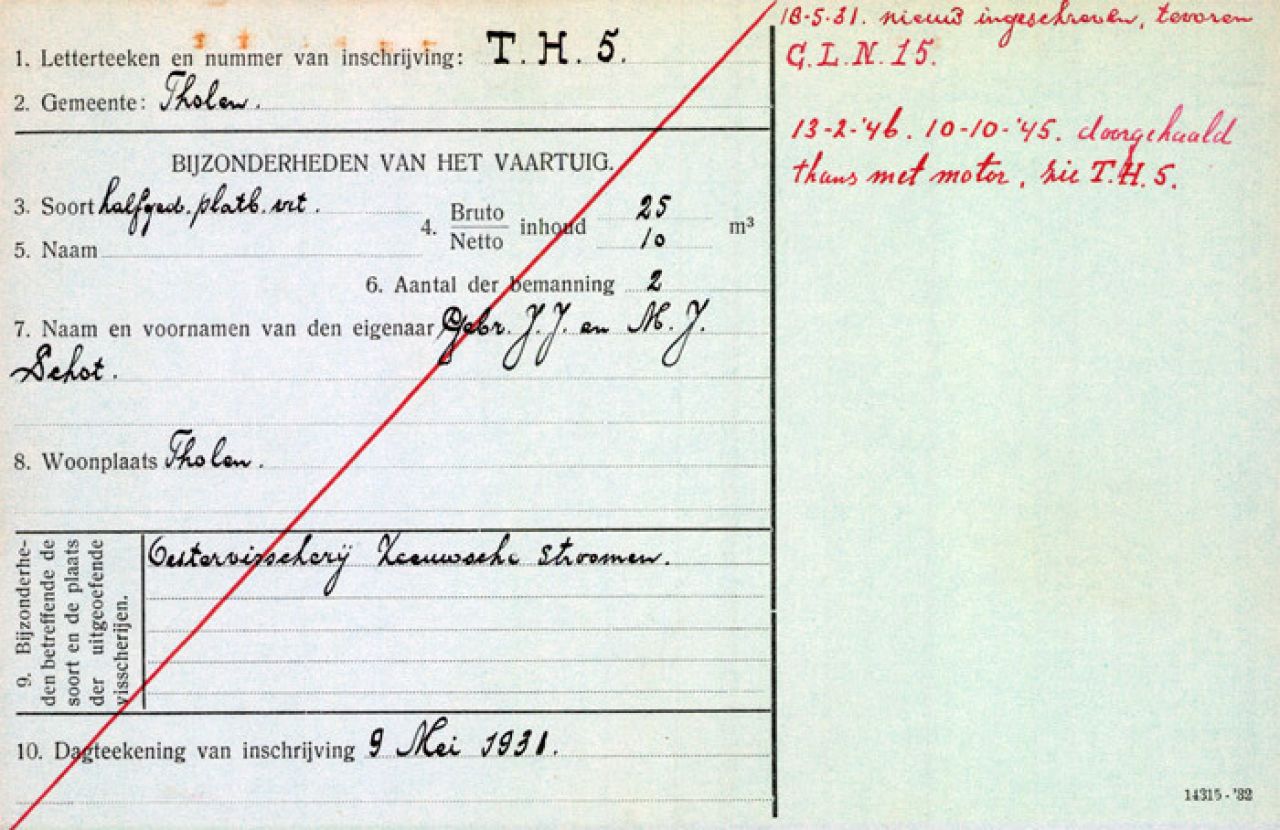 1. Letterteeken en nummer van inschrijving: T. H. 5.
2. Gemeente: Tholen.
BIJZONDERHEDEN VAN HET VAARTUIG.
3. Soort halfged. platb. vrt.
4. Bruto inhoud 25 m³
Netto 10
5. Naam
6. Aantal der bemanning 2
7. Naam en voornamen van den eigenaar Gebr. J. J. en M. J.
Schot.
8. Woonplaats Tholen.
9. Bijzonderhe-
den betreffende de
soort en de plaats
der uitgeoefende
visscherijen.
Oestervisscherij Zeeuwsche Stroomen.
10. Dagteekening van inschrijving 9 Mei 1931.
18-5-31. nieuw ingeschreven, tevoren
G. L. N. 15.
13-2-'46. 10-10-'45. doorgehaald
thans met motor, zie T.H. 5.
14315-'32